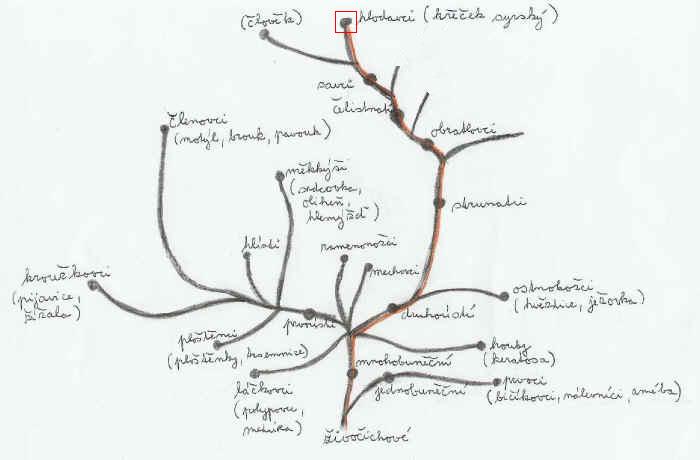 (člověk)
hlodavci (křeček syrský)
savci
čelistnatí
obratlovci
členovci
(motýl, brouk, pavouk)
měkkýši
(srdcovka,
oliheň,
hlemýžď)
strunatci
hlísti
ramenonožci
mechovci
kroužkovci
(pijavice,
žížala)
ostnokožci
(hvězdice, ježovka)
prvoústí
druhoústí
ploštěnci
(ploštěnky, tasemnice)
houby
(keratosa)
mnohobuněční
láčkovci
(polypovci,
medúka)
jednobuněční
prvoci
(bičíkovci, nálevníci, améba)
živočichové